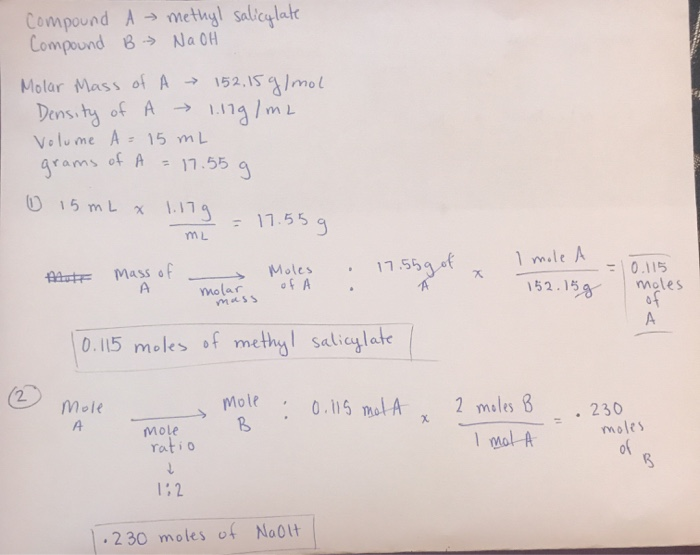 Compound A → methyl salicylate
Compound B → NaOH
Molar Mass of A → 152.15 g/mol
Density of A → 1.17g/mL
Volume A = 15 mL
grams of A = 17.55 g
(1) 15 mL x 1.17g / mL = 17.55 g
Mass of A → molar mass Moles of A : 17.55g of A x 1 mole A / 152.15g = 0.115 moles of A
0.115 moles of methyl salicylate
(2) Mole A → mole ratio ↓ 1:2 Mole B : 0.115 mol A x 2 moles B / 1 mol A = .230 moles of B
.230 moles of NaOH